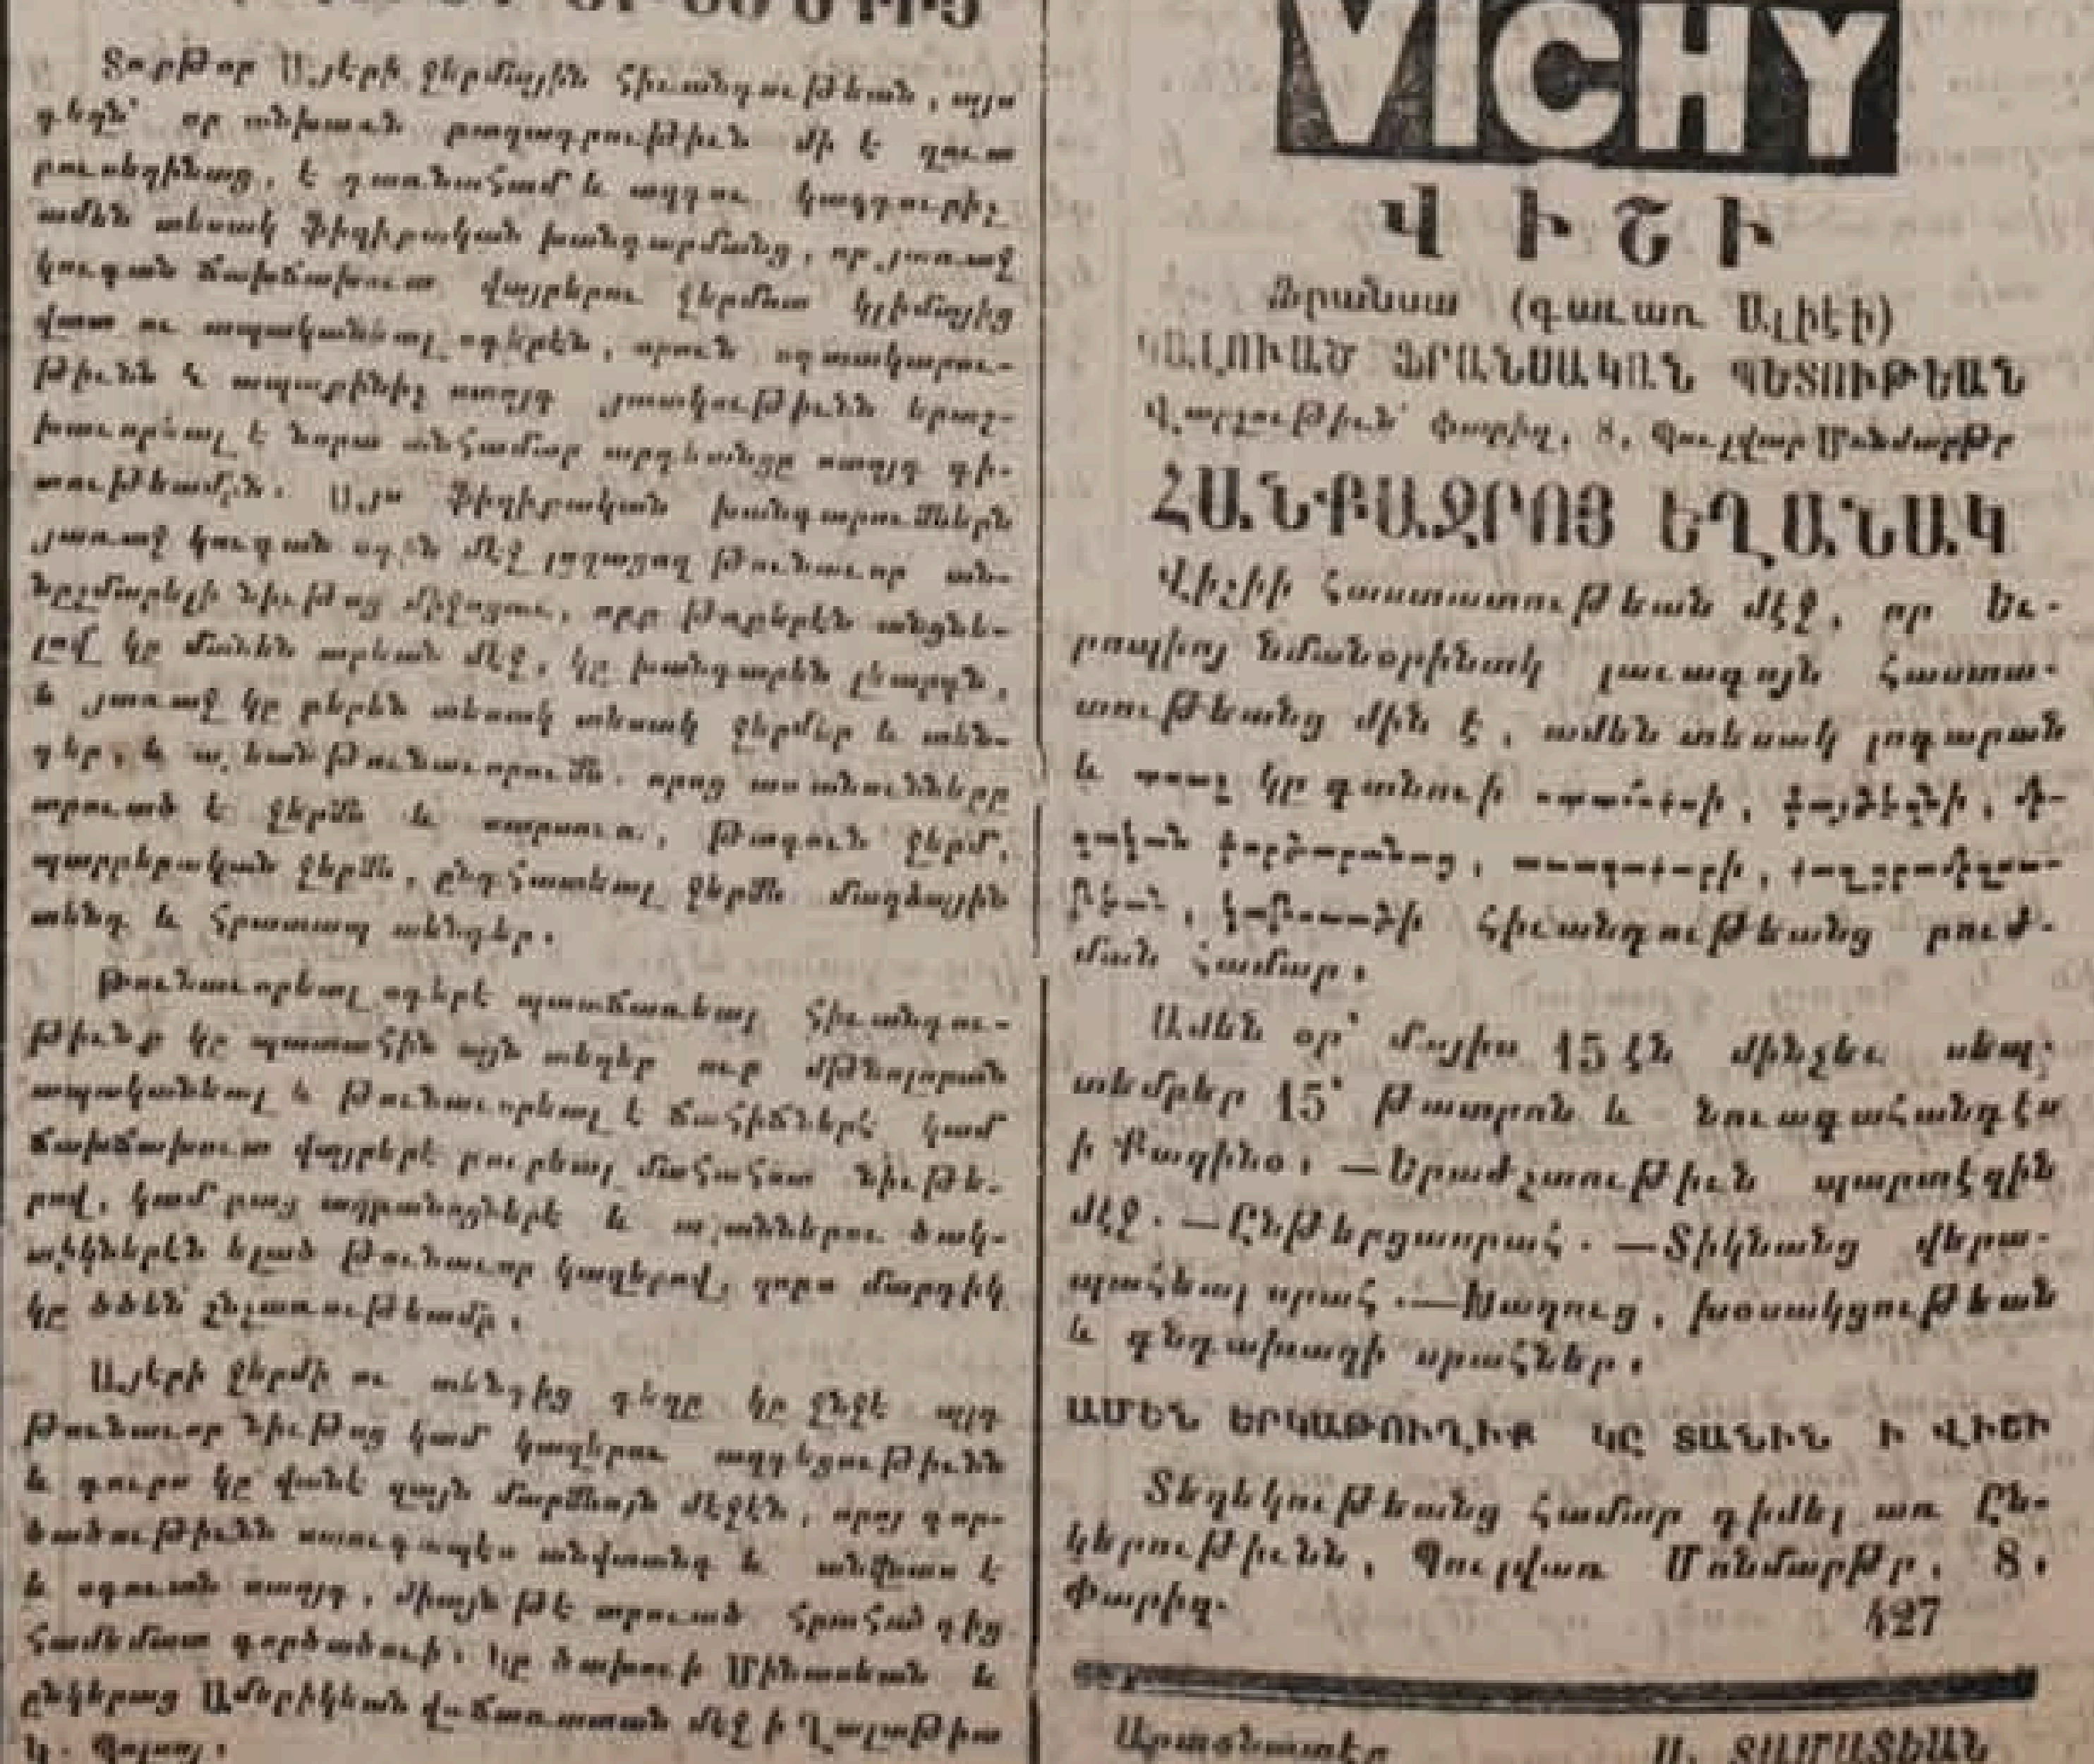 Տօքթօր Այէրի ջերմային հիւանդութեան, այս
դեղն՝ որ անխառն բաղադրութիւն մի է զուտ
բուսեղինաց, է դառնահամ և ազդու կազդուրիչ
ամեն տեսակ ֆիզիքական խանգարմանց, որ յառաջ
կուգան ճախճախուտ վայրերու ջերմոտ կլիմայից
վատ ու ապականեալ օդերէն, որուն օգտակարու-
թիւնն և ապաքինիչ ստոյգ յատկութիւնն երաշ-
խաւորեալ է նորա անհամար արդեանցը ստոյգ գի-
տութեամբն։ Այս ֆիզիքական խանգարումներն
յառաջ կուգան օդին մէջ լողացող թունաւոր ան-
նշմարելի նիւթոց միջոցաւ, որք թոքերէն անցնե-
լով կը մտնեն արեան մէջ, կը խանգարեն լեարդն,
և յառաջ կը բերեն տեսակ տեսակ ջերմեր և տեն-
դեր, և արեան թունաւորումն. որոց առ անունները
տրուած է ջերմն և սարսուռ, թագուն ջերմ,
պարբերական ջերմն, ընդհատեալ ջերմն մաղձային
տենդ և հրատապ տենդեր.
Թունաւորեալ օդերէ պատճառեալ հիւանդու-
թիւնք կը պատահին այն տեղեր ուր մթնոլորտն
ապականեալ և թունաւորեալ է ճահիճներէ կամ
ճախճախուտ վայրերէ բուրեալ մահահոտ նիւթե-
րով, կամ բաց աղբանոցներէ և աղաններու ծակ-
տիկներէն ելած թունաւոր կազերով, զորս մարդիկ
կը ծծեն շնչառութեամբ.
Այէրի ջերմի ու տենդից դեղը կը ջնջէ այդ
թունաւոր նիւթոց կամ կազերու ազդեցութիւնն
և դուրս կը վանէ զայն մարմնոյն մէջէն, որոյ գոր-
ծածութիւնն ստուգապէս անվտանգ և անվնաս է
և օգուտն ստոյգ, միայն թէ տրուած հրահանգից
համեմատ գործածուի. կը ծախուի Մինասեան և
ընկերաց Ամերիկեան վաճառատան մէջ ի Ղալաթիա
Կ. Պօլսոյ.
VICHY
ՎԻՇԻ
Ֆրանսա (գաւառ Ալիէի)
ԿԱԼՈՒԱԾ ՖՐԱՆՍԱԿԱՆ ՊԵՏՈՒԹԵԱՆ
Վարչութիւն՝ Փարիզ, 8, Պուլվար Մոնմարթր
ՀԱՆՔԱՋՐՈՅ ԵՂԱՆԱԿ
Վիշիի հաստատութեան մէջ, որ Եւ-
րոպիոյ նմանօրինակ լաւագոյն հաստա-
տութեանց մին է, ամեն տեսակ լոգարան
և կը գտնուի ստամոքսի, փայծեղնի, մի-
զական
հիւանդութեանց բուժ-
ման համար.
Ամեն օր՝ մայիս 15էն մինչեւ սեպ-
տեմբեր 15՝ թատրոն և նուագահանդէս
ի Քազինօ. —Երաժշտութիւն պարտէզին
մէջ. —Ընթերցասրահ. —Տիկնանց վերա-
պահեալ սրահ.—Խաղուց, խօսակցութեան
և գնդախաղի սրահներ.
ԱՄԵՆ ԵՐԿԱԹՈՒՂԻՔ ԿԸ ՏԱՆԻՆ Ի ՎԻՇԻ
Տեղեկութեանց համար դիմել առ Ըն-
կերութիւնն, Պուլվառ Մոնմարթր, 8,
Փարիզ.
427
Արտօնատէր Ա. ՏԱՄԱՏԵԱՆ